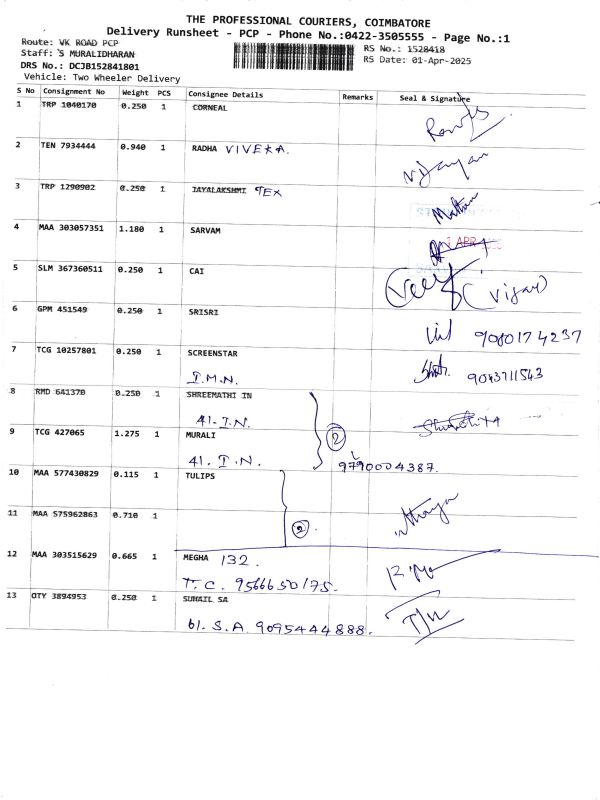 THE PROFESSIONAL COURIERS, COIMBATORE
Delivery Runsheet - PCP - Phone No.:0422-3505555 - Page No.:1
Route: VK ROAD PCP
Staff: S MURALIDHARAN
DRS No.: DCJB152841801
Vehicle: Two Wheeler Delivery
RS No.: 1528418
RS Date: 01-Apr-2025
S No Consignment No Weight PCS Consignee Details Remarks Seal & Signature
1 TRP 1040170 0.250 1 CORNEAL
2 TEN 7934444 0.940 1 RADHA VIVEKA. Vijayan
3 TRP 1290902 0.250 1 JAYALAKSHMI TEX
4 MAA 303057351 1.180 1 SARVAM
APR
5 SLM 367360511 0.250 1 CAI (Vijay)
6 GPM 451549 0.250 1 SRISRI
9080174237
7 TCG 10257801 0.250 1 SCREENSTAR
I.M.N. 9043711543
8 RMD 641370 0.250 1 SHREEMATHI IN
41-I.N. 2
9 TCG 427065 1.275 1 MURALI
41. I.N. 9790004387.
10 MAA 577430829 0.115 1 TULIPS
11 MAA 575962863 0.710 1 2.
12 MAA 303515629 0.665 1 MEGHA 132.
T.C. 9566650175.
13 OTY 3894953 0.250 1 SUHAIL SA
61. S.A 9095444888.